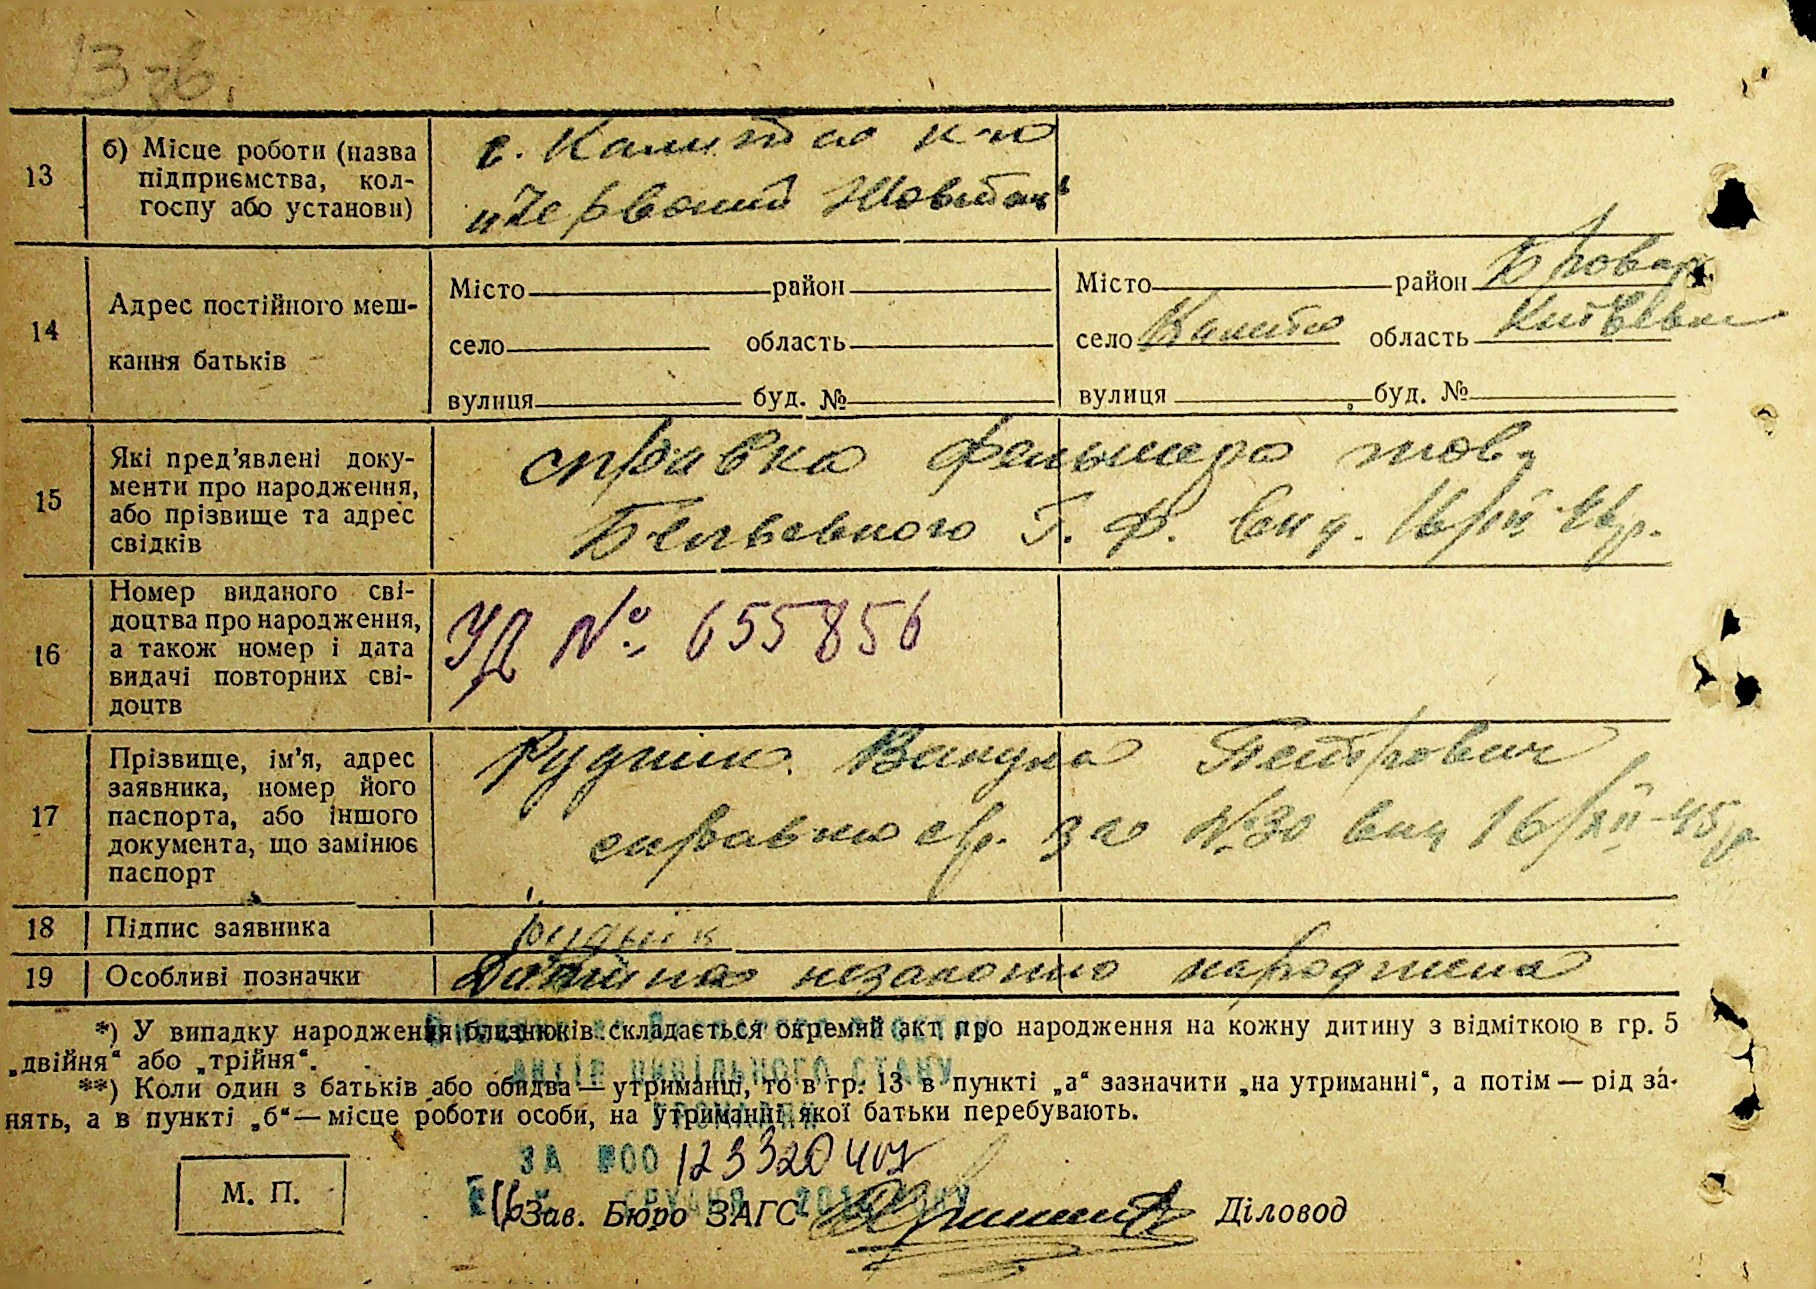 13 зв.
13
б) Місце роботи (назва
підприємства, кол-
госпу або установи)
с. Калита к-п
„Червоний Жовтень“
14
Адрес постійного меш-
кання батьків
Місто район
село область
вулиця буд. №
Місто район Бровар
село Калита область Київська
вулиця буд. №
15
Які пред’явлені доку-
менти про народження,
або прізвище та адрес
свідків
справка фельшера тов.
Г. Ф. вид. 16/XII
16
Номер виданого сві-
доцтва про народження,
а також номер і дата
видачі повторних сві-
доцтв
УД № 655856
17
Прізвище, ім’я, адрес
заявника, номер його
паспорта, або іншого
документа, що замінює
паспорт
Рудник Вакула Петрович
справка с/р. за №30 вид 16/XII-45р
18
Підпис заявника
Рудник
19
Особливі позначки
Дитина незаконно народжена
*) У випадку народження близнюків складається окремий акт про народження на кожну дитину з відміткою в гр. 5
„двійня“ або „трійня“.
**) Коли один з батьків або обидва — утриманці, то в гр. 13 в пункті „а“ зазначити „на утриманні“, а потім — рід за-
нять, а в пункті „б“ — місце роботи особи, на утриманні якої батьки перебувають.
АКТІВ ЦИВІЛЬНОГО СТАНУ
ГРОМАДЯН
ЗА №00 123320407
ГРУДНЯ
М. П.
Зав. Бюро ЗАГС
Діловод